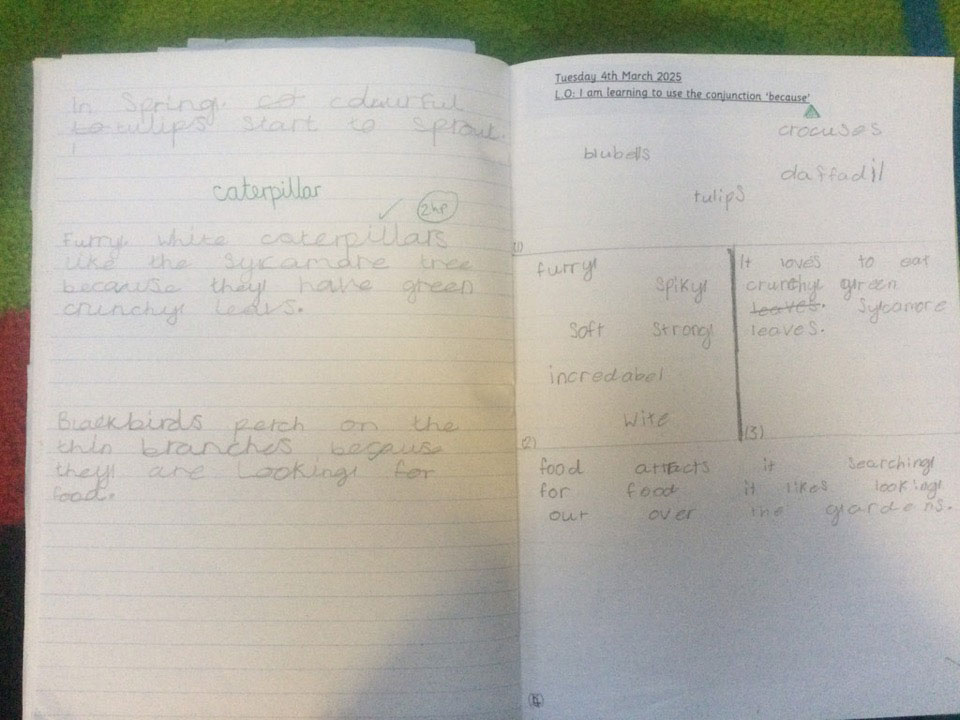 In Spring, colourful
tulips start to sprout.
caterpillar
2hp
Furry white caterpillars
like the sycamore tree
because they have green
crunchy leavs.
Blackbirds perch on the
thin branches because
they are looking for
food.
Tuesday 4th March 2025
L.O: I am learning to use the conjunction 'because'
crocuses
blubells
daffadil
tulips
(1)
furry
spiky
soft strong
incredabel
wite
(2)
It loves to eat
crunchy green
leaves. Sycamore
leaves.
(3)
food attracts it searching
for food it likes looking
out over the gardens.